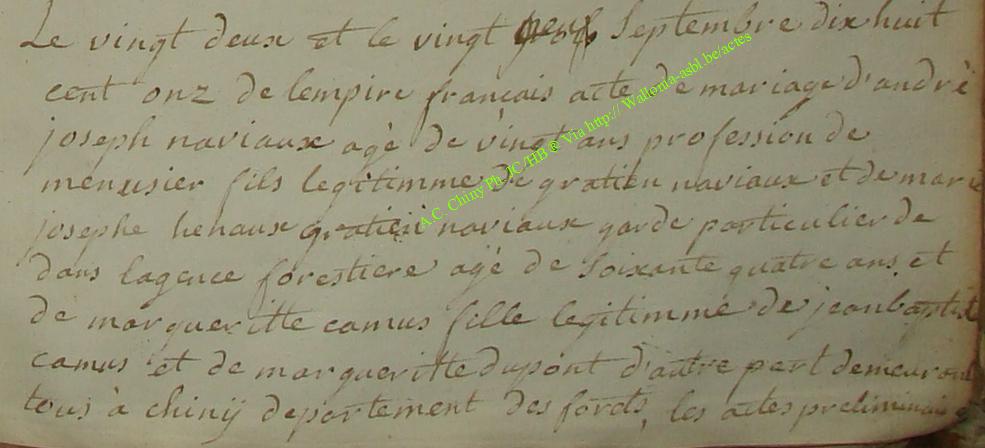 Le vingt deux et le vingt neuf Septembre dix huit
cent onz de lempire francais acte de mariage d'andré
joseph naviaux agé de vingt ans profession de
menusier fils legitimme de gratien naviaux et de marie
josephe henaux gratien naviaux garde particulier de
dans lagence forestiere agé de soixante quatre ans et
de margueritte camus fille legitimme de jeanbaptist
camus et de margueritte dupont d'autre part demeurant
tous à chinÿ departement des forets, les actes preliminair
A.C. Chiny Ph JC/HB @ Via http:// Wallonia-asbl.be/actes